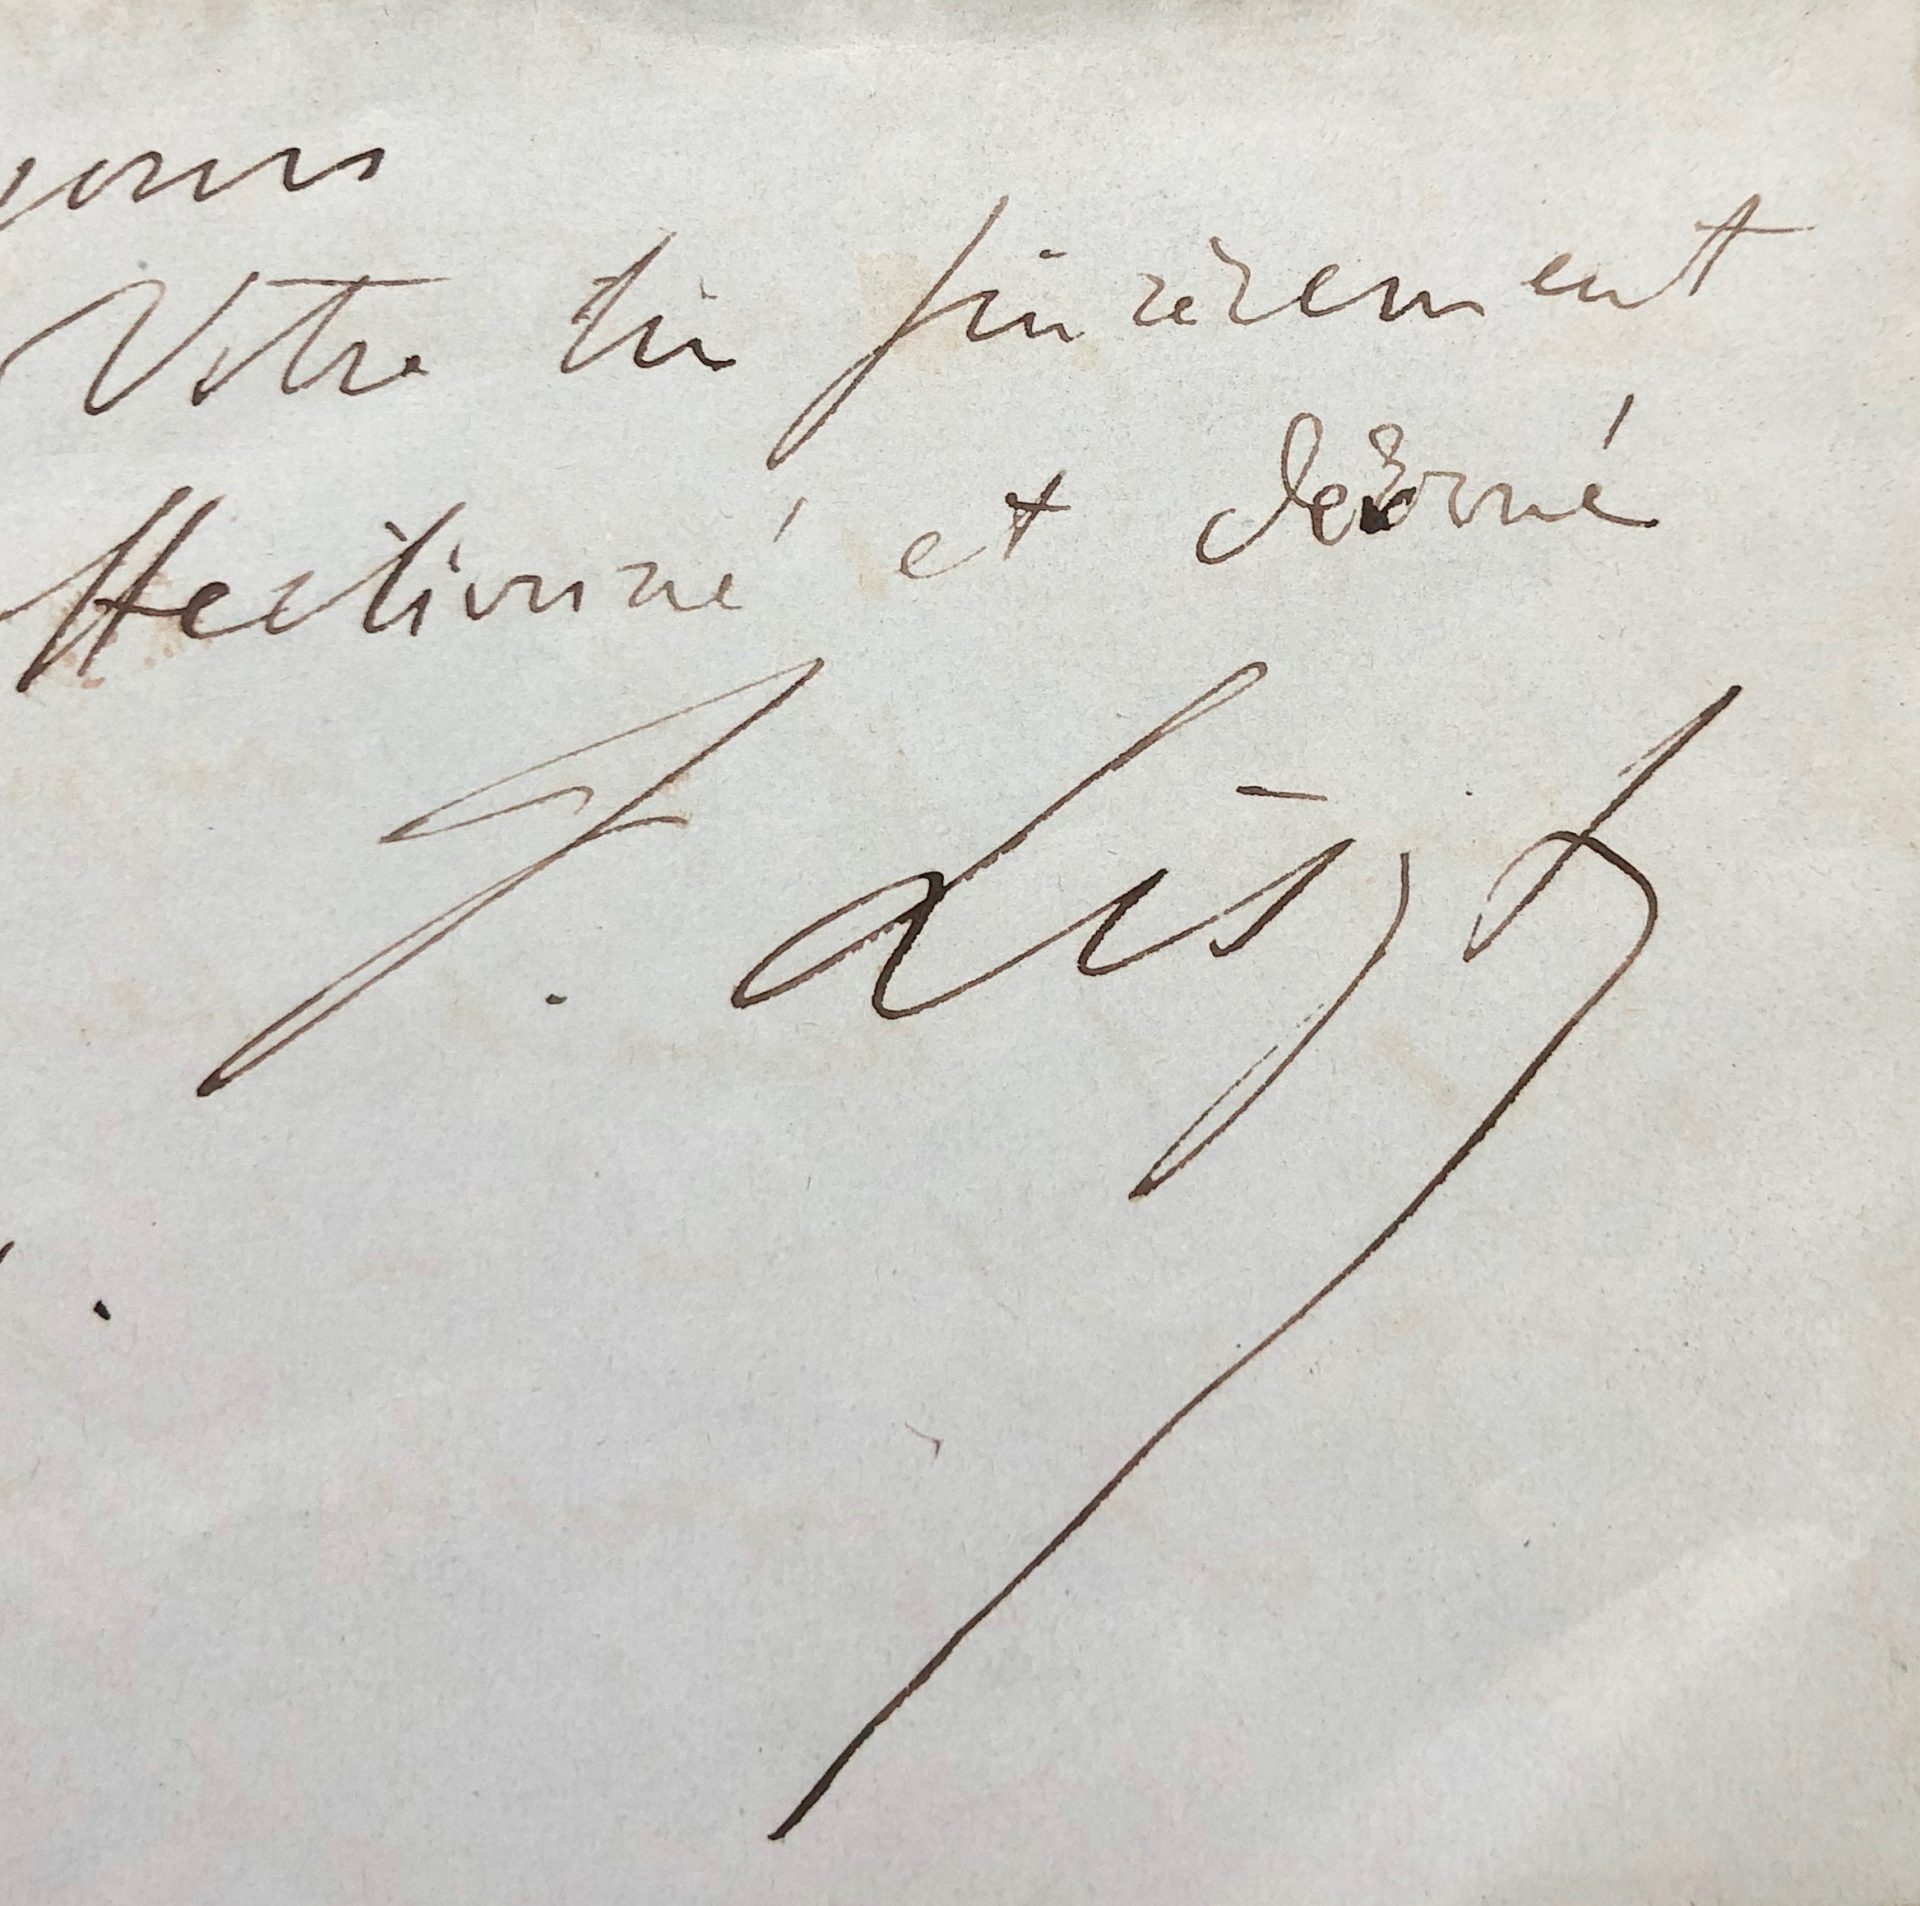 Votre très sincèrement
ffectionné et dévoué
F. Liszt